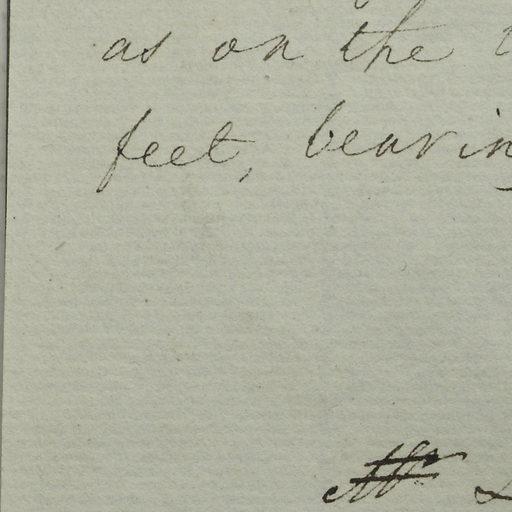 as on the
feet, bearing